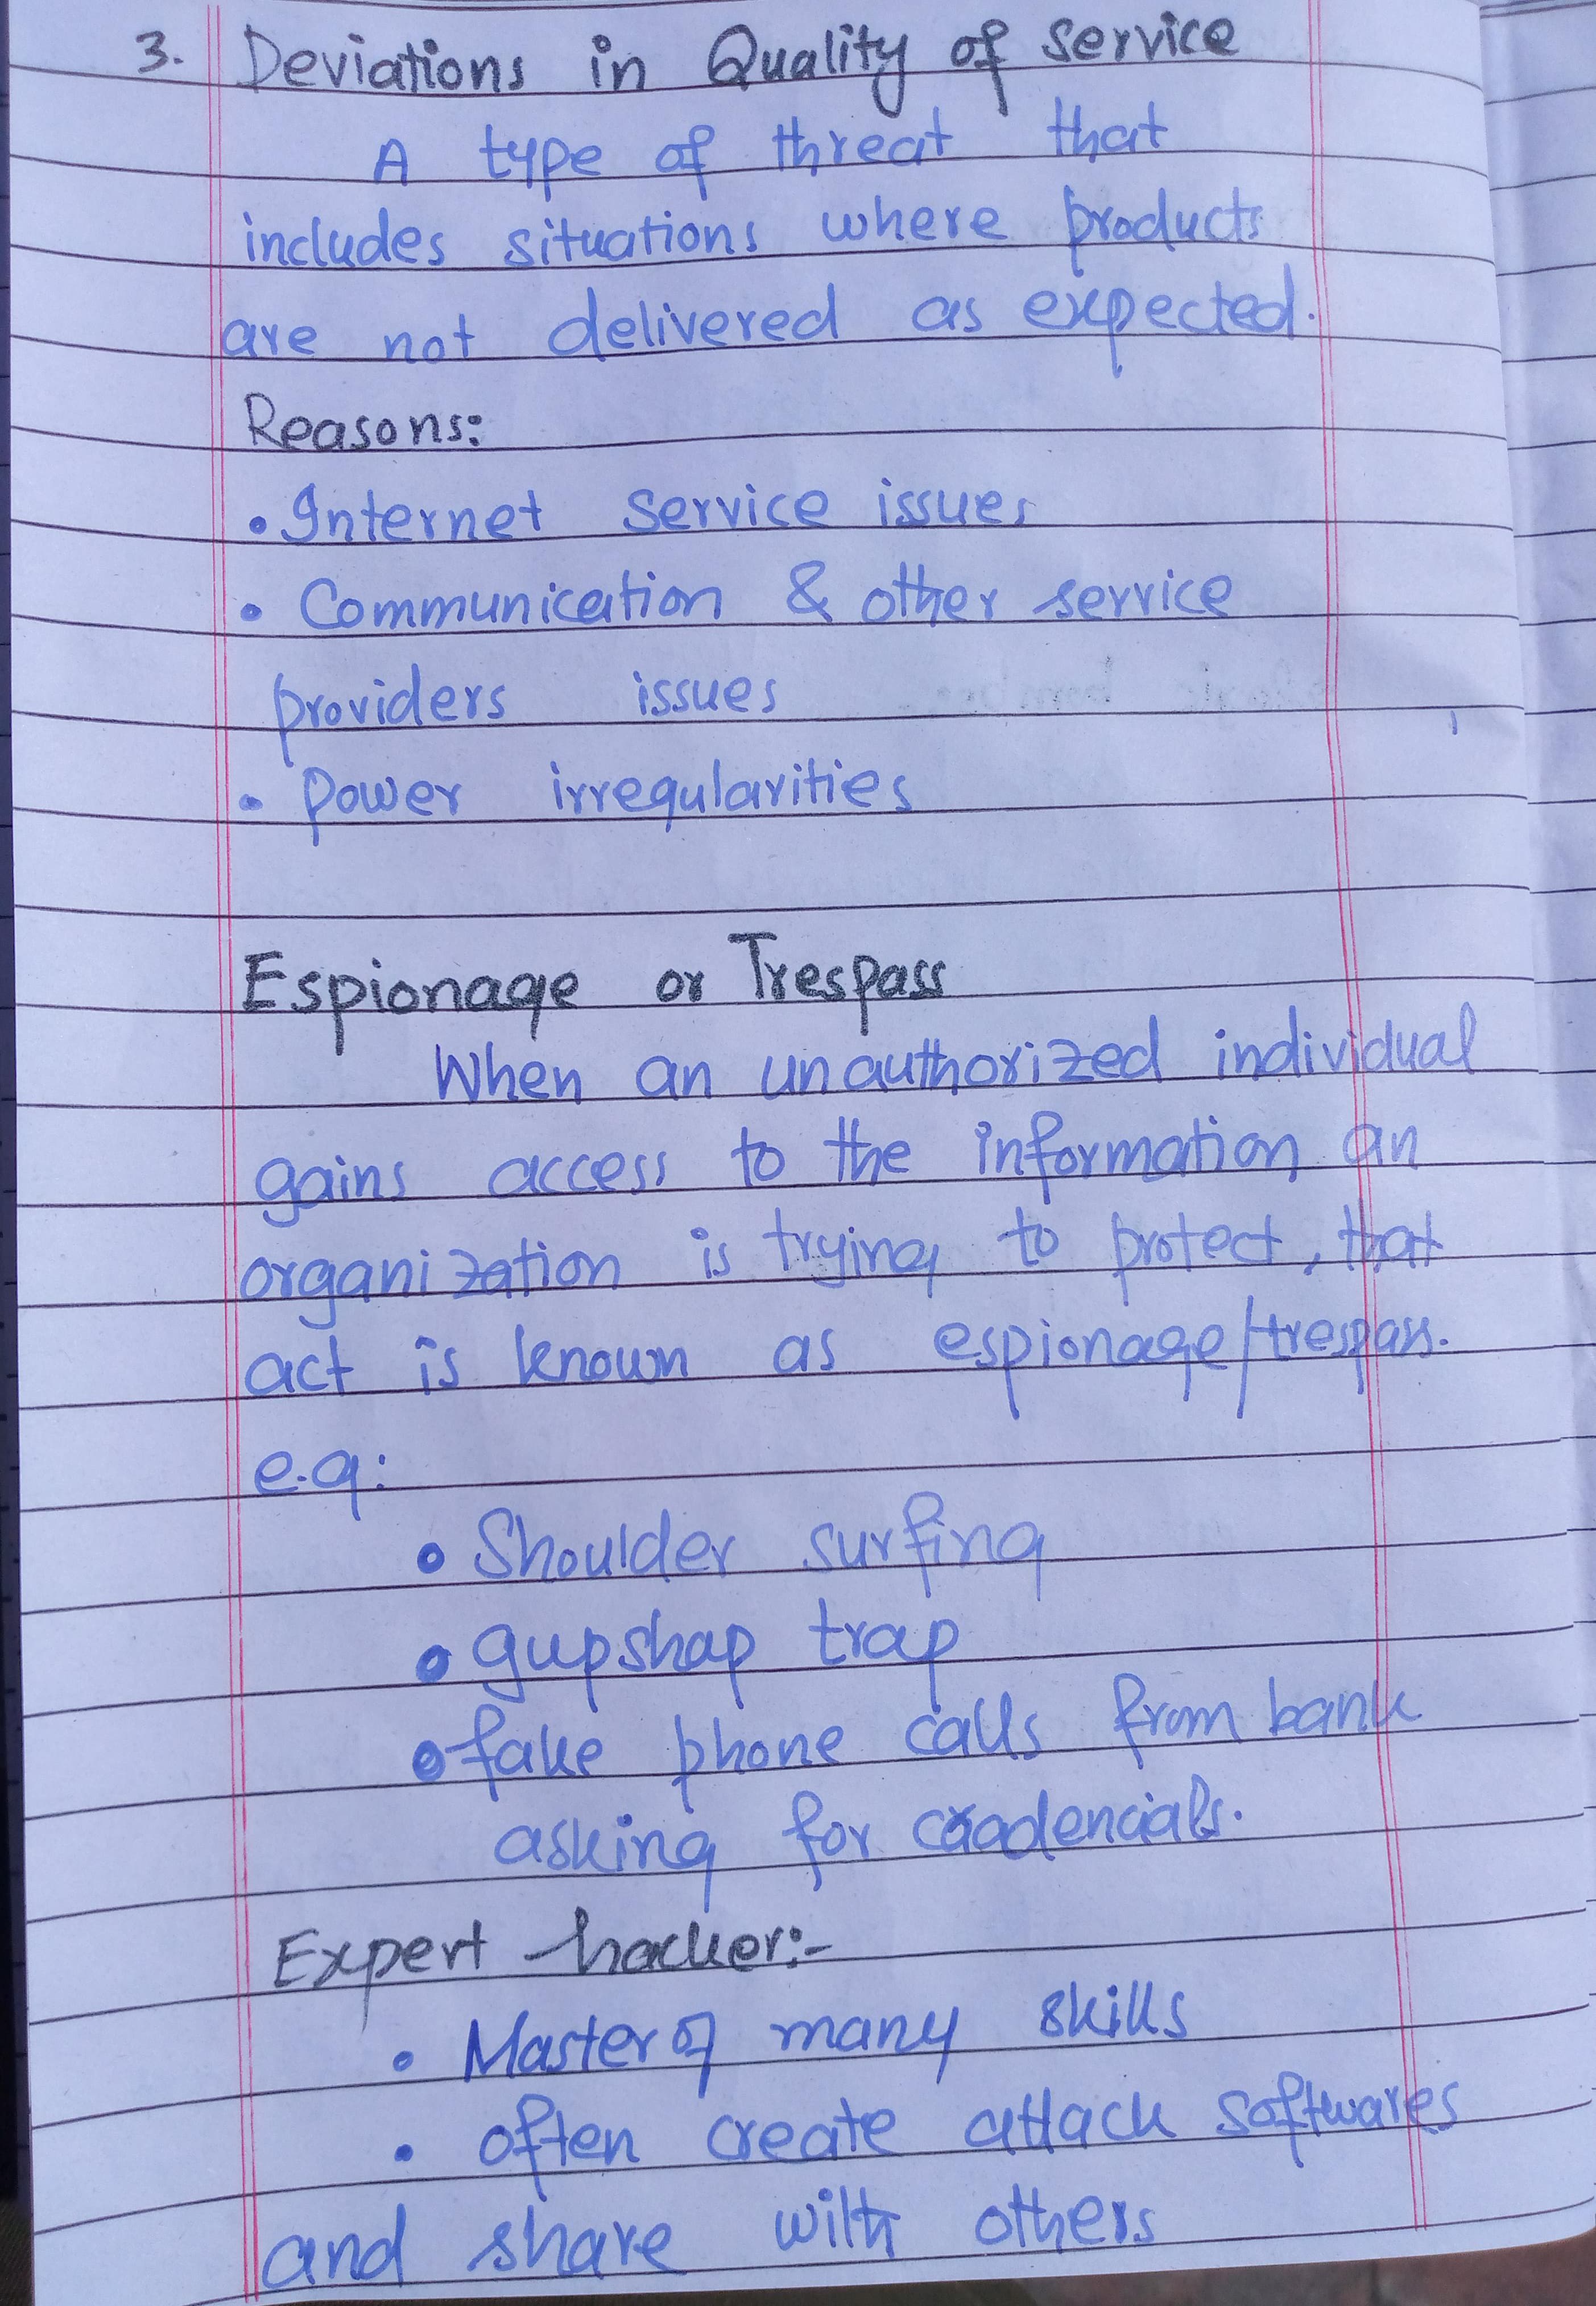 3. Deviations in Quality of service
A type of threat that
includes situations where products
are not delivered as expected.
Reasons:
• Internet service issues
• Communication & other service
providers issues
• Power irregularities
Espionage or Trespass
When an unauthorized individual
gains access to the information an
organization is trying to protect, that
act is known as espionage/trespass.
e.g:
• Shoulder surfing
• gupshap trap
• fake phone calls from bank
asking for craadencials.
Expert hacker:-
• Master of many skills
• often create attack softwares
and share with others